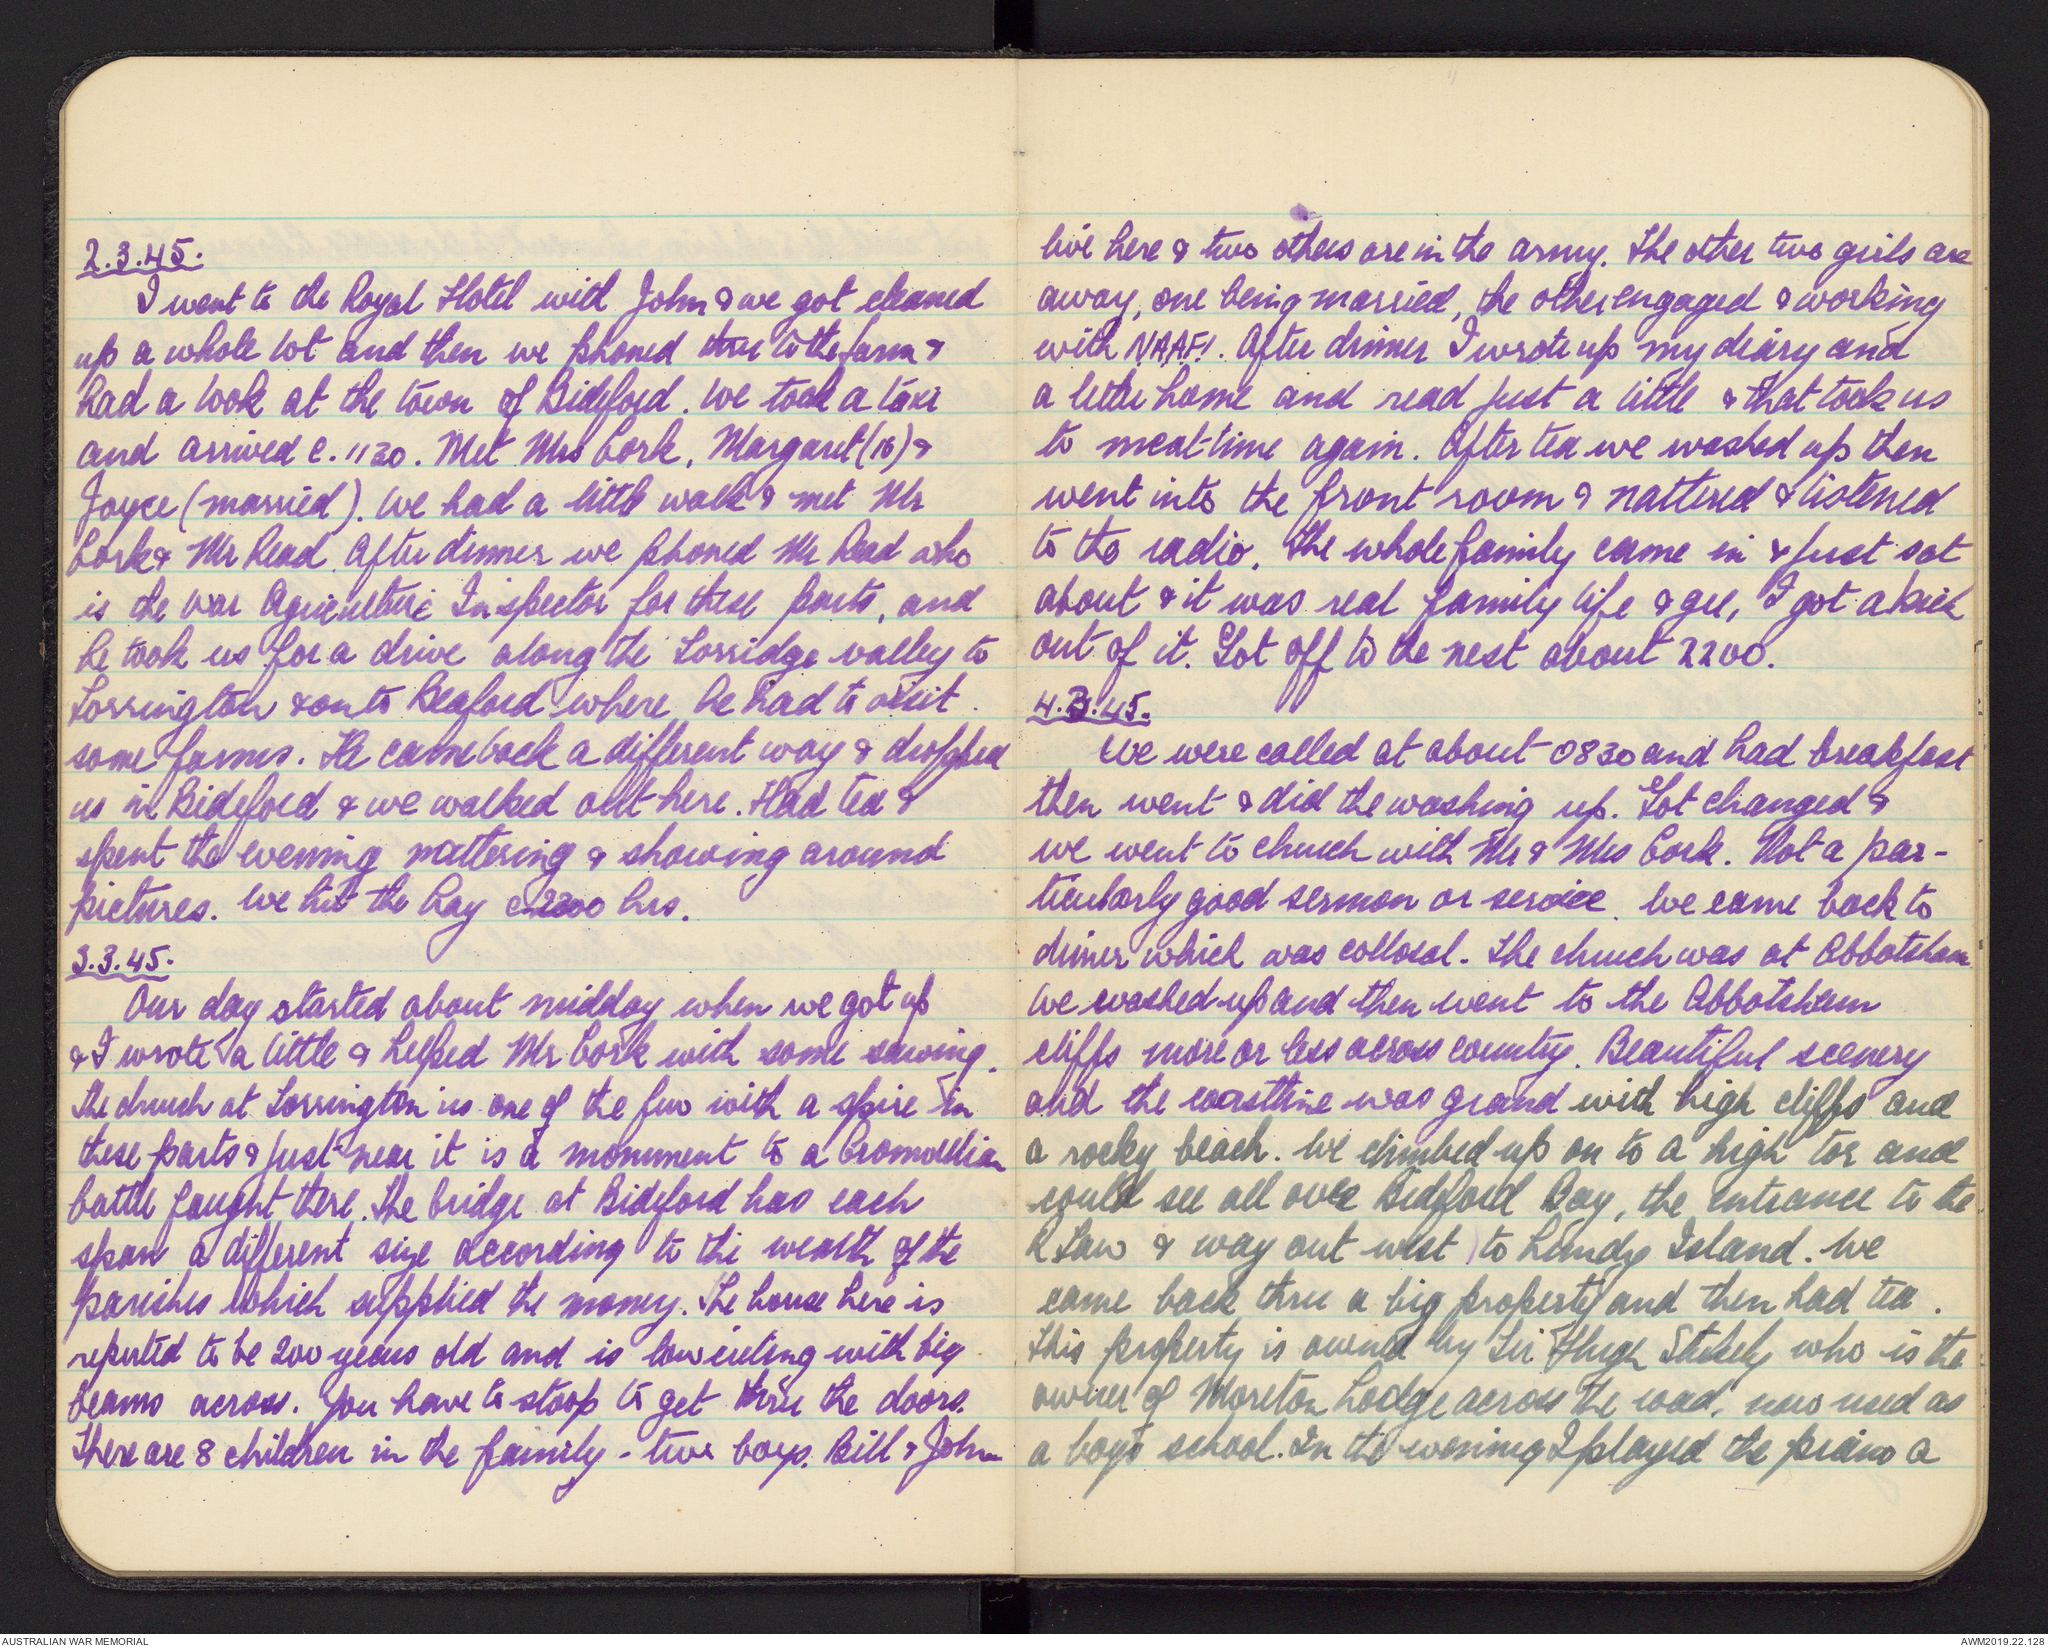 2.3.45.
I went to the Royal Hotel with John & we got cleaned
up a whole lot and then we phoned thru to the farm &
had a look at the town of Bideford. We took a taxi
and arrived c. 1130. Met Mrs Cork, Margaret (16) &
Joyce (married). We had a little walk & met Mr
Cork & Mr Read. After dinner we phoned Mr Read who
is the War Agriculture Inspector for these parts, and
he took us for a drive along the Torridge valley to
Torrington & on to Beaford where he had to visit
some farms. He came back a different way & dropped
us in Bideford & we walked out here. Had tea &
spent the evening nattering & showing around
pictures. We hit the hay c 2200 hrs.
3.3.45.
Our day started about midday when we got up
& I wrote a little & helped Mr Cork with some sawing.
The church at Torrington is one of the few with a spire in
these parts & just near it is a monument to a Cromwellian
battle fought there. The bridge at Bideford has each
span a different size according to the wealth of the
parishes which supplied the money. The house here is
reputed to be 200 years old and is low ceiling with big
beams across. You have to stoop to get thru the doors.
There are 8 children in the family - two boys. Bill & John
live here & two others are in the army. The other two girls are
away, one being married, the other engaged & working
with NAAFI. After dinner I wrote up my diary and
a letter home and read just a little & that took us
to meal-time again. After tea we washed up then
went into the front room & nattered & listened
to the radio. The whole family came in & just sat
about & it was real family life & gee, I got a kick
out of it. Got off to the nest about 2200.
4.3.45.
We were called at about 0830 and had breakfast
then went & did the washing up. Got changed &
we went to church with Mr & Mrs Cork. Not a par-
ticularly good sermon or service. We came back to
dinner which was collosal. The church was at Abbotsham
We washed up and then went to the Abbotsham
cliffs more or less across country. Beautiful scenery
and the coastline was grand with high cliffs and
a rocky beach. We climbed up on to a high tor and
could see all over Bideford Bay, the entrance to the
R Taw & way out west to Lundy Island. We
came back thru a big property and then had tea.
This property is owned by Sir Hugh Stukely who is the
owner of Moreton Lodge across the road, now used as
a boys school. In the evening I played the piano a
AUSTRALIAN WAR MEMORIAL
AWM2019.22.128